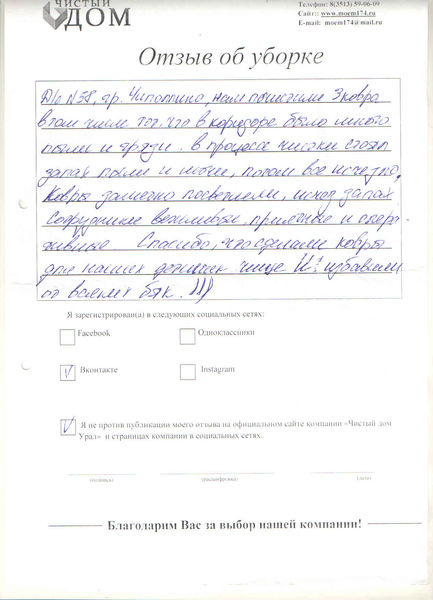 ЧИСТЫЙ
ДОМ
Телефон: 8(3513) 59-06-09
Сайт:: www.moem174.ru
E-mail: moem174@mail.ru
Отзыв об уборке
Д/с №38, гр. Чиполлино, нам почистили 3 ковра
в том числе тот, что в коридоре было много
пыли и грязи. В процессе чистки стоял
запах пыли и мочи, потом все исчезло.
Ковры заметно посветлели, исчез запах.
Сотрудники вежливые, приятные и опера-
тивные. Спасибо, что сделали ковры
для наших детишек чище и избавили
от всяких бяк.
Я зарегистрирован(а) в следующих социальных сетях:
Facebook
Одноклассники
Вконтакте
Instagram
Я не против публикации моего отзыва на официальном сайте компании «Чистый дом
Урал» и страницах компании в социальных сетях.
(подпись) (расшифровка) (дата)
Благодарим Вас за выбор нашей компании!